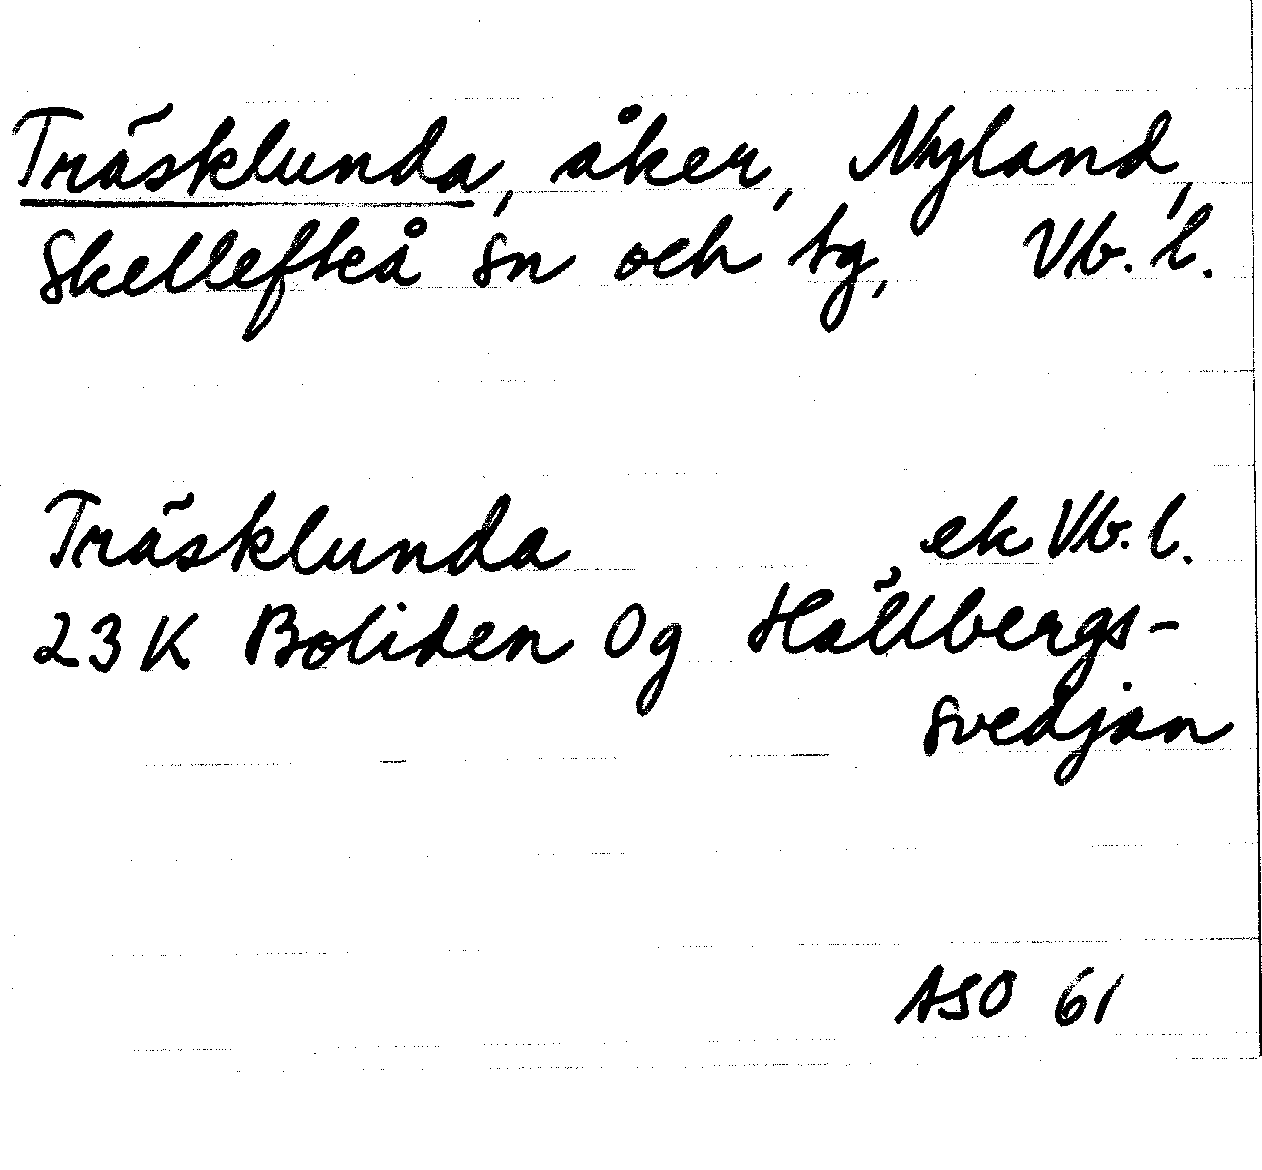 Träsklunda, åker, Nyland,
Skellefteå sn och tg, Vb. l.
Träsklunda ek Vb. l.
23 K Boliden 0g Hällbergs-
svedjan
ASO 61